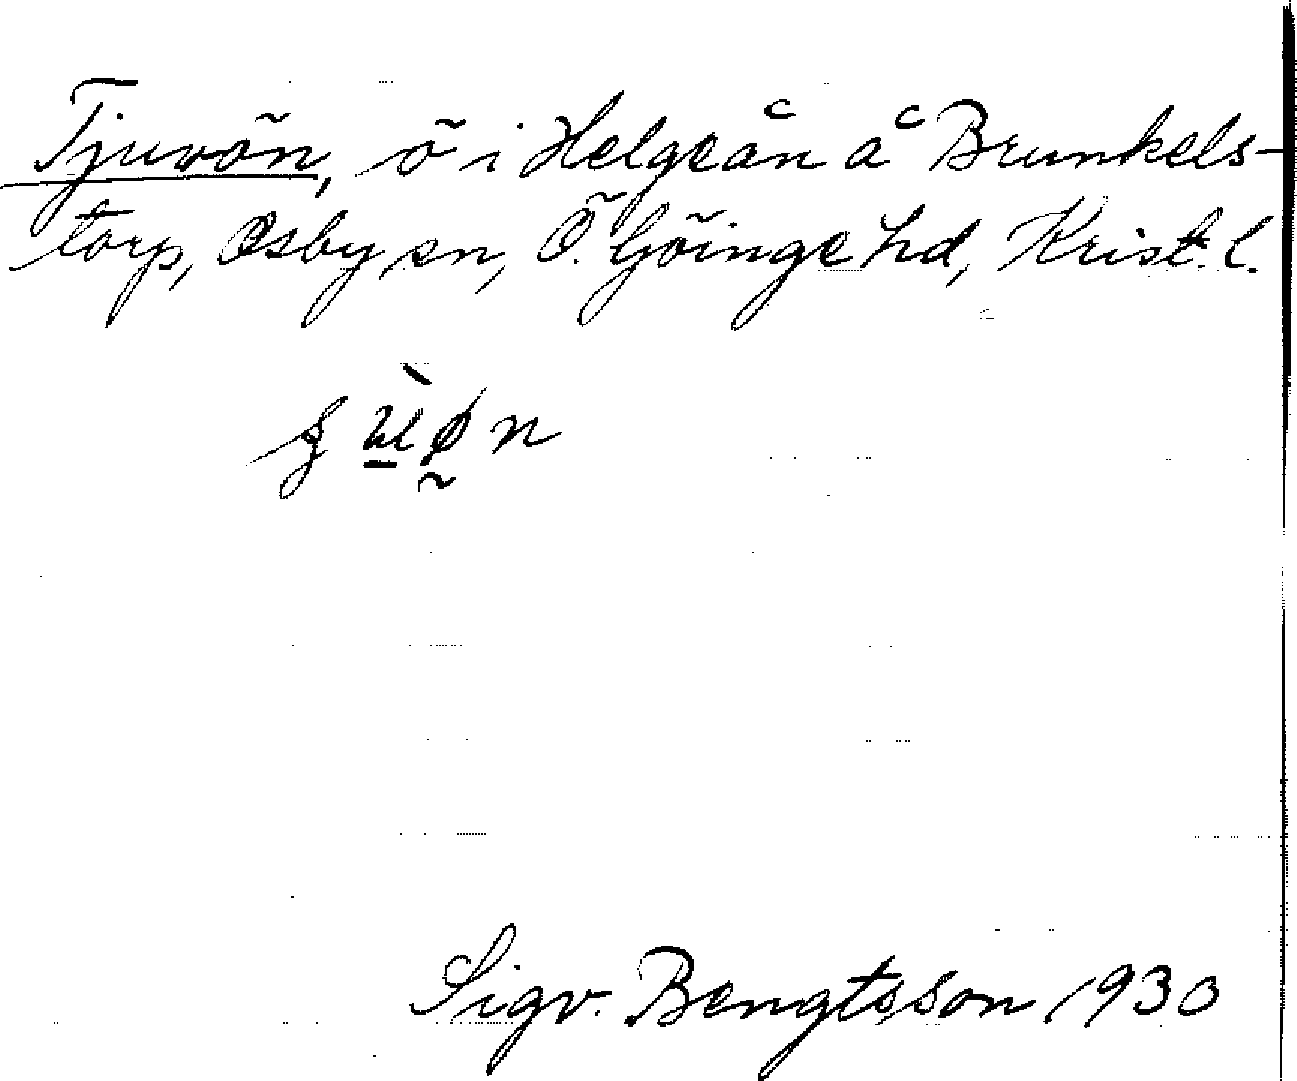 Tjuvön, ö i Helgeån å Brunkels-
torp, Osby sn, Ö. Göinge hd, Krist. l.
Sigv. Bengtsson 1930